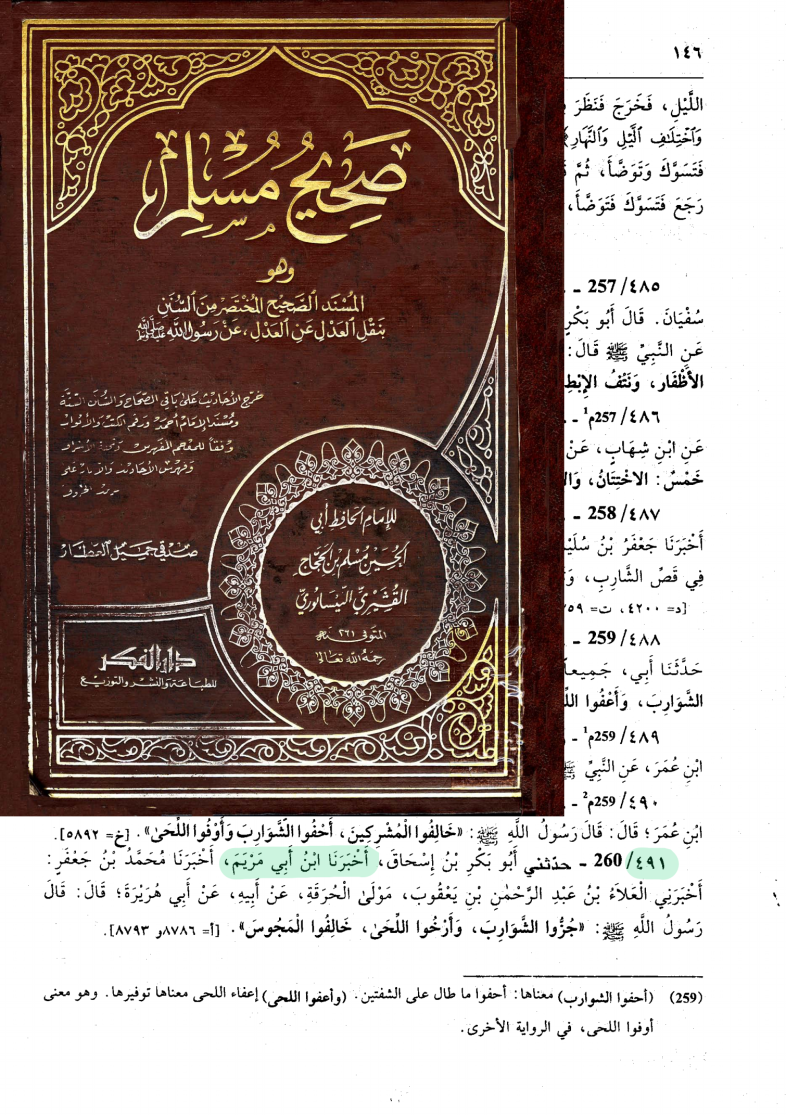 صَحِيحُ مُسْلِم
وهو
المُسْنَد الصَّحِيح المُخْتَصَر مِنَ السُّنَن
بنَقْل العَدْل عَنِ العَدْل، عَنْ رَسُول الله ﷺ
خرج الأحاديث على باقي الصحاح والسنن الستة
ومسند الإمام أحمد ورقم الكتب والأبواب
وفقاً للمعجم المفهرس وتحفة الأشراف
للإمام الحافظ أبي
الحسين مسلم بن الحجاج
القشيري النيسابوري
المتوفى ٢٦١ هـ
رحمه الله تعالى
صدقي جميل العطار
دار الفكر
للطباعة والنشر والتوزيع
١٤٦
اللَّيْلِ، فَخَرَجَ فَنَظَرَ
وَٱخْتِلَٰفِ ٱلَّيْلِ وَٱلنَّهَارِ﴾
فَتَسَوَّكَ وَتَوَضَّأَ، ثُمَّ
رَجَعَ فَتَسَوَّكَ فَتَوَضَّأَ،
٤٨٥/ 257 ـ
سُفْيَانَ. قَالَ أَبُو بَكْرٍ
عَنِ النَّبِيِّ ﷺ قَالَ:
الأَظْفَارِ، وَنَتْفُ الإِبْطِ
٤٨٦/ 257م¹ ـ
عَنِ ابْنِ شِهَابٍ، عَنْ
خَمْسٌ: الاخْتِتَانُ،
٤٨٧/ 258 ـ
أَخْبَرَنَا جَعْفَرُ بْنُ
فِي قَصِّ الشَّارِبِ،
[د= ٤٢٠٠، ت=
٤٨٨/ 259 ـ
حَدَّثَنَا أَبِي، جَمِيعاً
الشَّوَارِبَ، وَأَعْفُوا
٤٨٩/ 259م¹ ـ
ابْنِ عُمَرَ، عَنِ النَّبِيِّ ﷺ
٤٩٠/ 259م² ـ
ابْنِ عُمَرَ؛ قَالَ: قَالَ رَسُولُ اللَّهِ ﷺ: «خَالِفُوا الْمُشْرِكِينَ، أَحْفُوا الشَّوَارِبَ وَأَوْفُوا اللِّحَىٰ». [خ= ٥٨٩٢].
٤٩١/ 260 ـ حدّثني أَبُو بَكْرِ بْنُ إِسْحَاقَ، أَخْبَرَنَا ابْنُ أَبِي مَرْيَمَ، أَخْبَرَنَا مُحَمَّدُ بْنُ جَعْفَرٍ:
أَخْبَرَنِي الْعَلاَءُ بْنُ عَبْدِ الرَّحْمٰنِ بْنِ يَعْقُوبَ، مَوْلَىٰ الْحُرَقَةِ، عَنْ أَبِيهِ، عَنْ أَبِي هُرَيْرَةَ؛ قَالَ: قَالَ
رَسُولُ اللَّهِ ﷺ: «جُزُّوا الشَّوَارِبَ، وَأَرْخُوا اللِّحَىٰ، خَالِفُوا الْمَجُوسَ». [أ= ٨٧٨٦ و ٨٧٩٣].
(259) (أحفوا الشوارب) معناها: أحفوا ما طال على الشفتين. (وأعفوا اللحى) إعفاء اللحى معناها توفيرها. وهو معنى
أوفوا اللحى، في الرواية الأخرى.